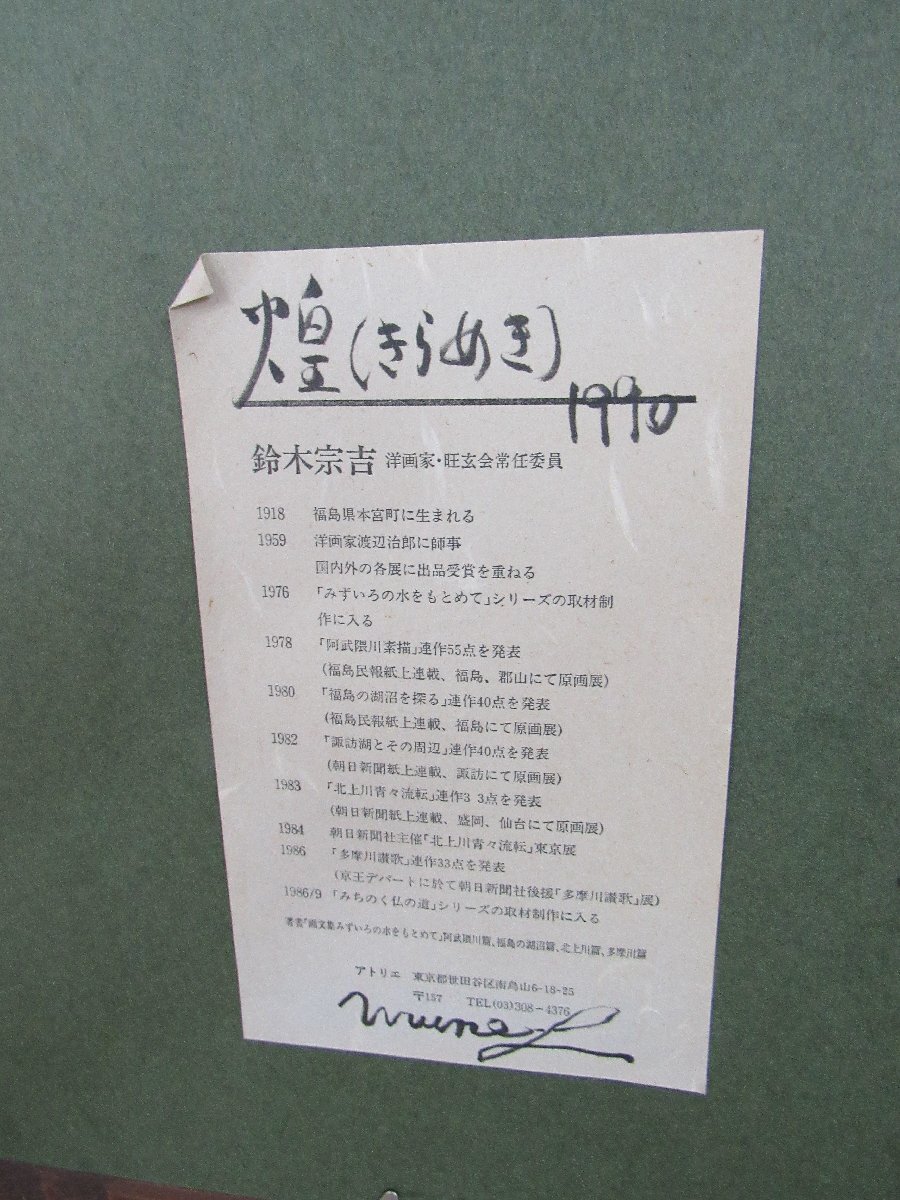 煌(きらめき)
1990
鈴木宗吉 洋画家・旺玄会常任委員
1918 福島県本宮町に生まれる
1959 洋画家渡辺治郎に師事
国内外の各展に出品受賞を重ねる
1976 「みずいろの水をもとめて」シリーズの取材制
作に入る
1978 「阿武隈川素描」連作55点を発表
(福島民報紙上連載、福島、郡山にて原画展)
1980 「福島の湖沼を探る」連作40点を発表
(福島民報紙上連載、福島にて原画展)
1982 「諏訪湖とその周辺」連作40点を発表
(朝日新聞紙上連載、諏訪にて原画展)
1983 「北上川青々流転」連作3 3点を発表
(朝日新聞紙上連載、盛岡、仙台にて原画展)
1984 朝日新聞社主催「北上川青々流転」東京展
1986 「多摩川讃歌」連作33点を発表
(京王デパートに於て朝日新聞社後援「多摩川讃歌」展)
1986/9 「みちのく仏の道」シリーズの取材制作に入る
著書「画文集みずいろの水をもとめて」阿武隈川篇、福島の湖沼篇、北上川篇、多摩川篇
アトリエ 東京都世田谷区南烏山6-18-25
〒157 TEL(03)308-4376